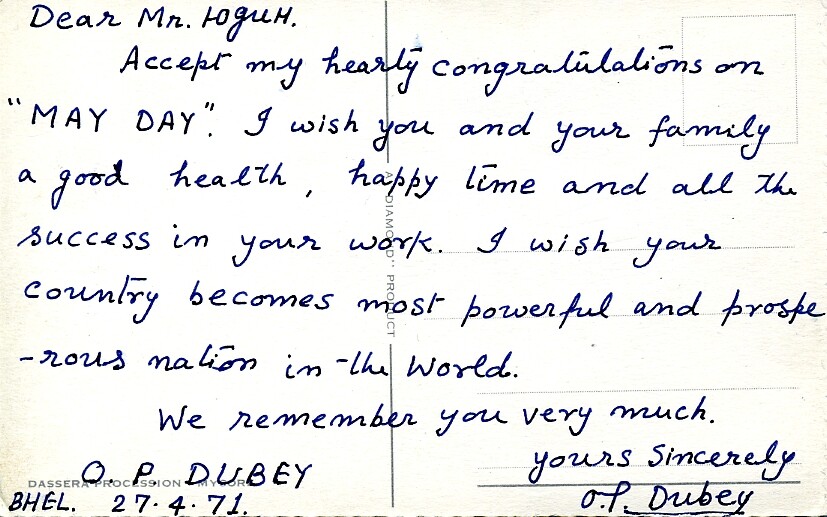 Dear Mr. Юдин.
Accept my hearty congratulations on
"MAY DAY". I wish you and your family
a good health, happy time and all the
success in your work. I wish your
country becomes most powerful and prospe
-rous nation in the World.
We remember you very much.
yours Sincerely
O. P. DUBEY
O.P. Dubey
BHEL. 27.4.71.
DASSERA PROCESSION MYSORE
A "DIAMOND" PRODUCT